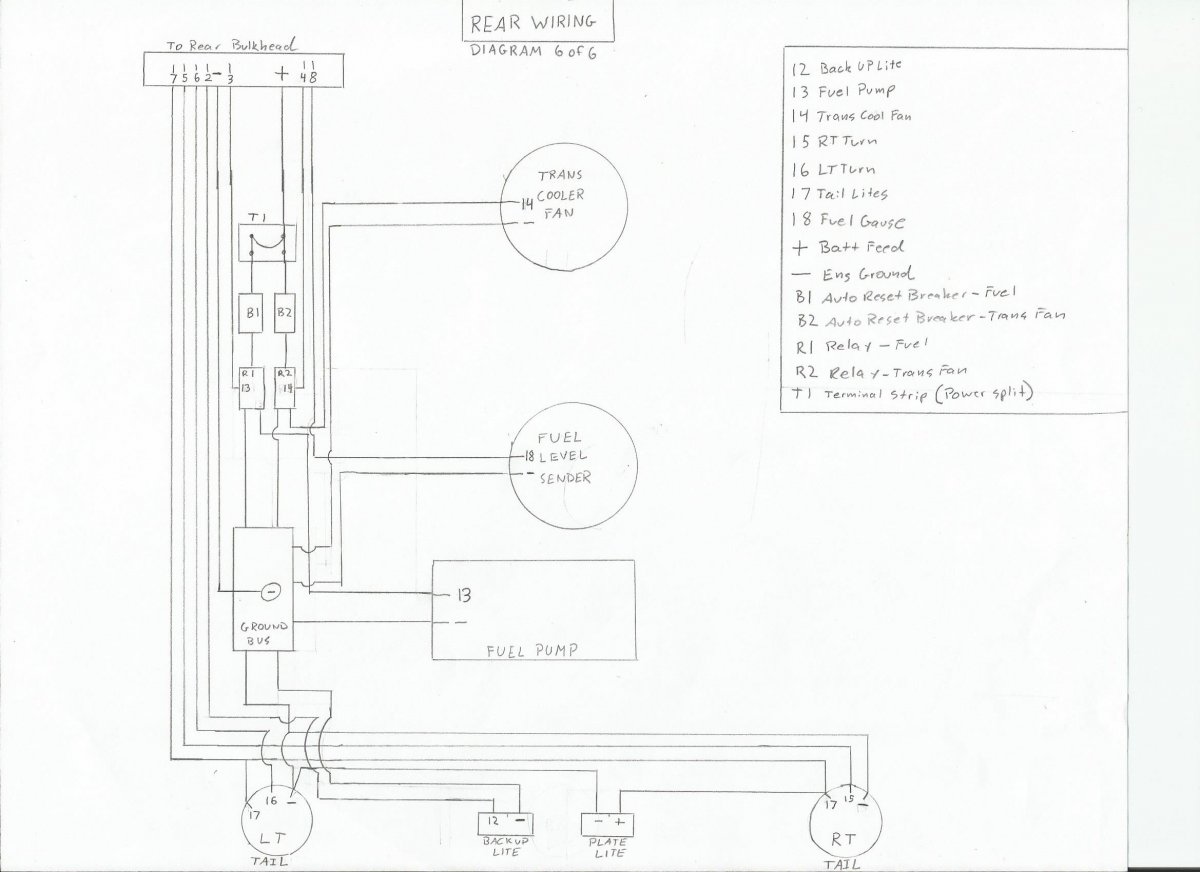 REAR WIRING
DIAGRAM 6 OF 6
To Rear Bulkhead
17 15 16 12 - 13 + 14 18
12 Back UP Lite
13 Fuel Pump
14 Trans Cool Fan
15 RT Turn
16 LT Turn
17 Tail Lites
18 Fuel Gauge
+ Batt Feed
— Eng Ground
B1 Auto Reset Breaker - Fuel
B2 Auto Reset Breaker - Trans Fan
R1 Relay - Fuel
R2 Relay - Trans Fan
T1 Terminal Strip (Power split)
TRANS
14 COOLER
- FAN
T1
B1 B2
R1 R2
13 14
FUEL
18 LEVEL
- SENDER
13
-
FUEL PUMP
-
GROUND
BUS
16 -
17
LT
TAIL
12 -
BACKUP
LITE
- +
PLATE
LITE
17 15 -
RT
TAIL